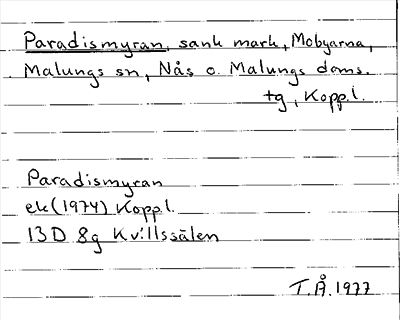 Paradismyran, sank mark, Mobyarna,
Malungs sn, Nås o. Malungs doms.
tg, Koppl.
Paradismyran
ek (1974) Koppl.
13D 8g Kvillssälen
T.Å. 1977